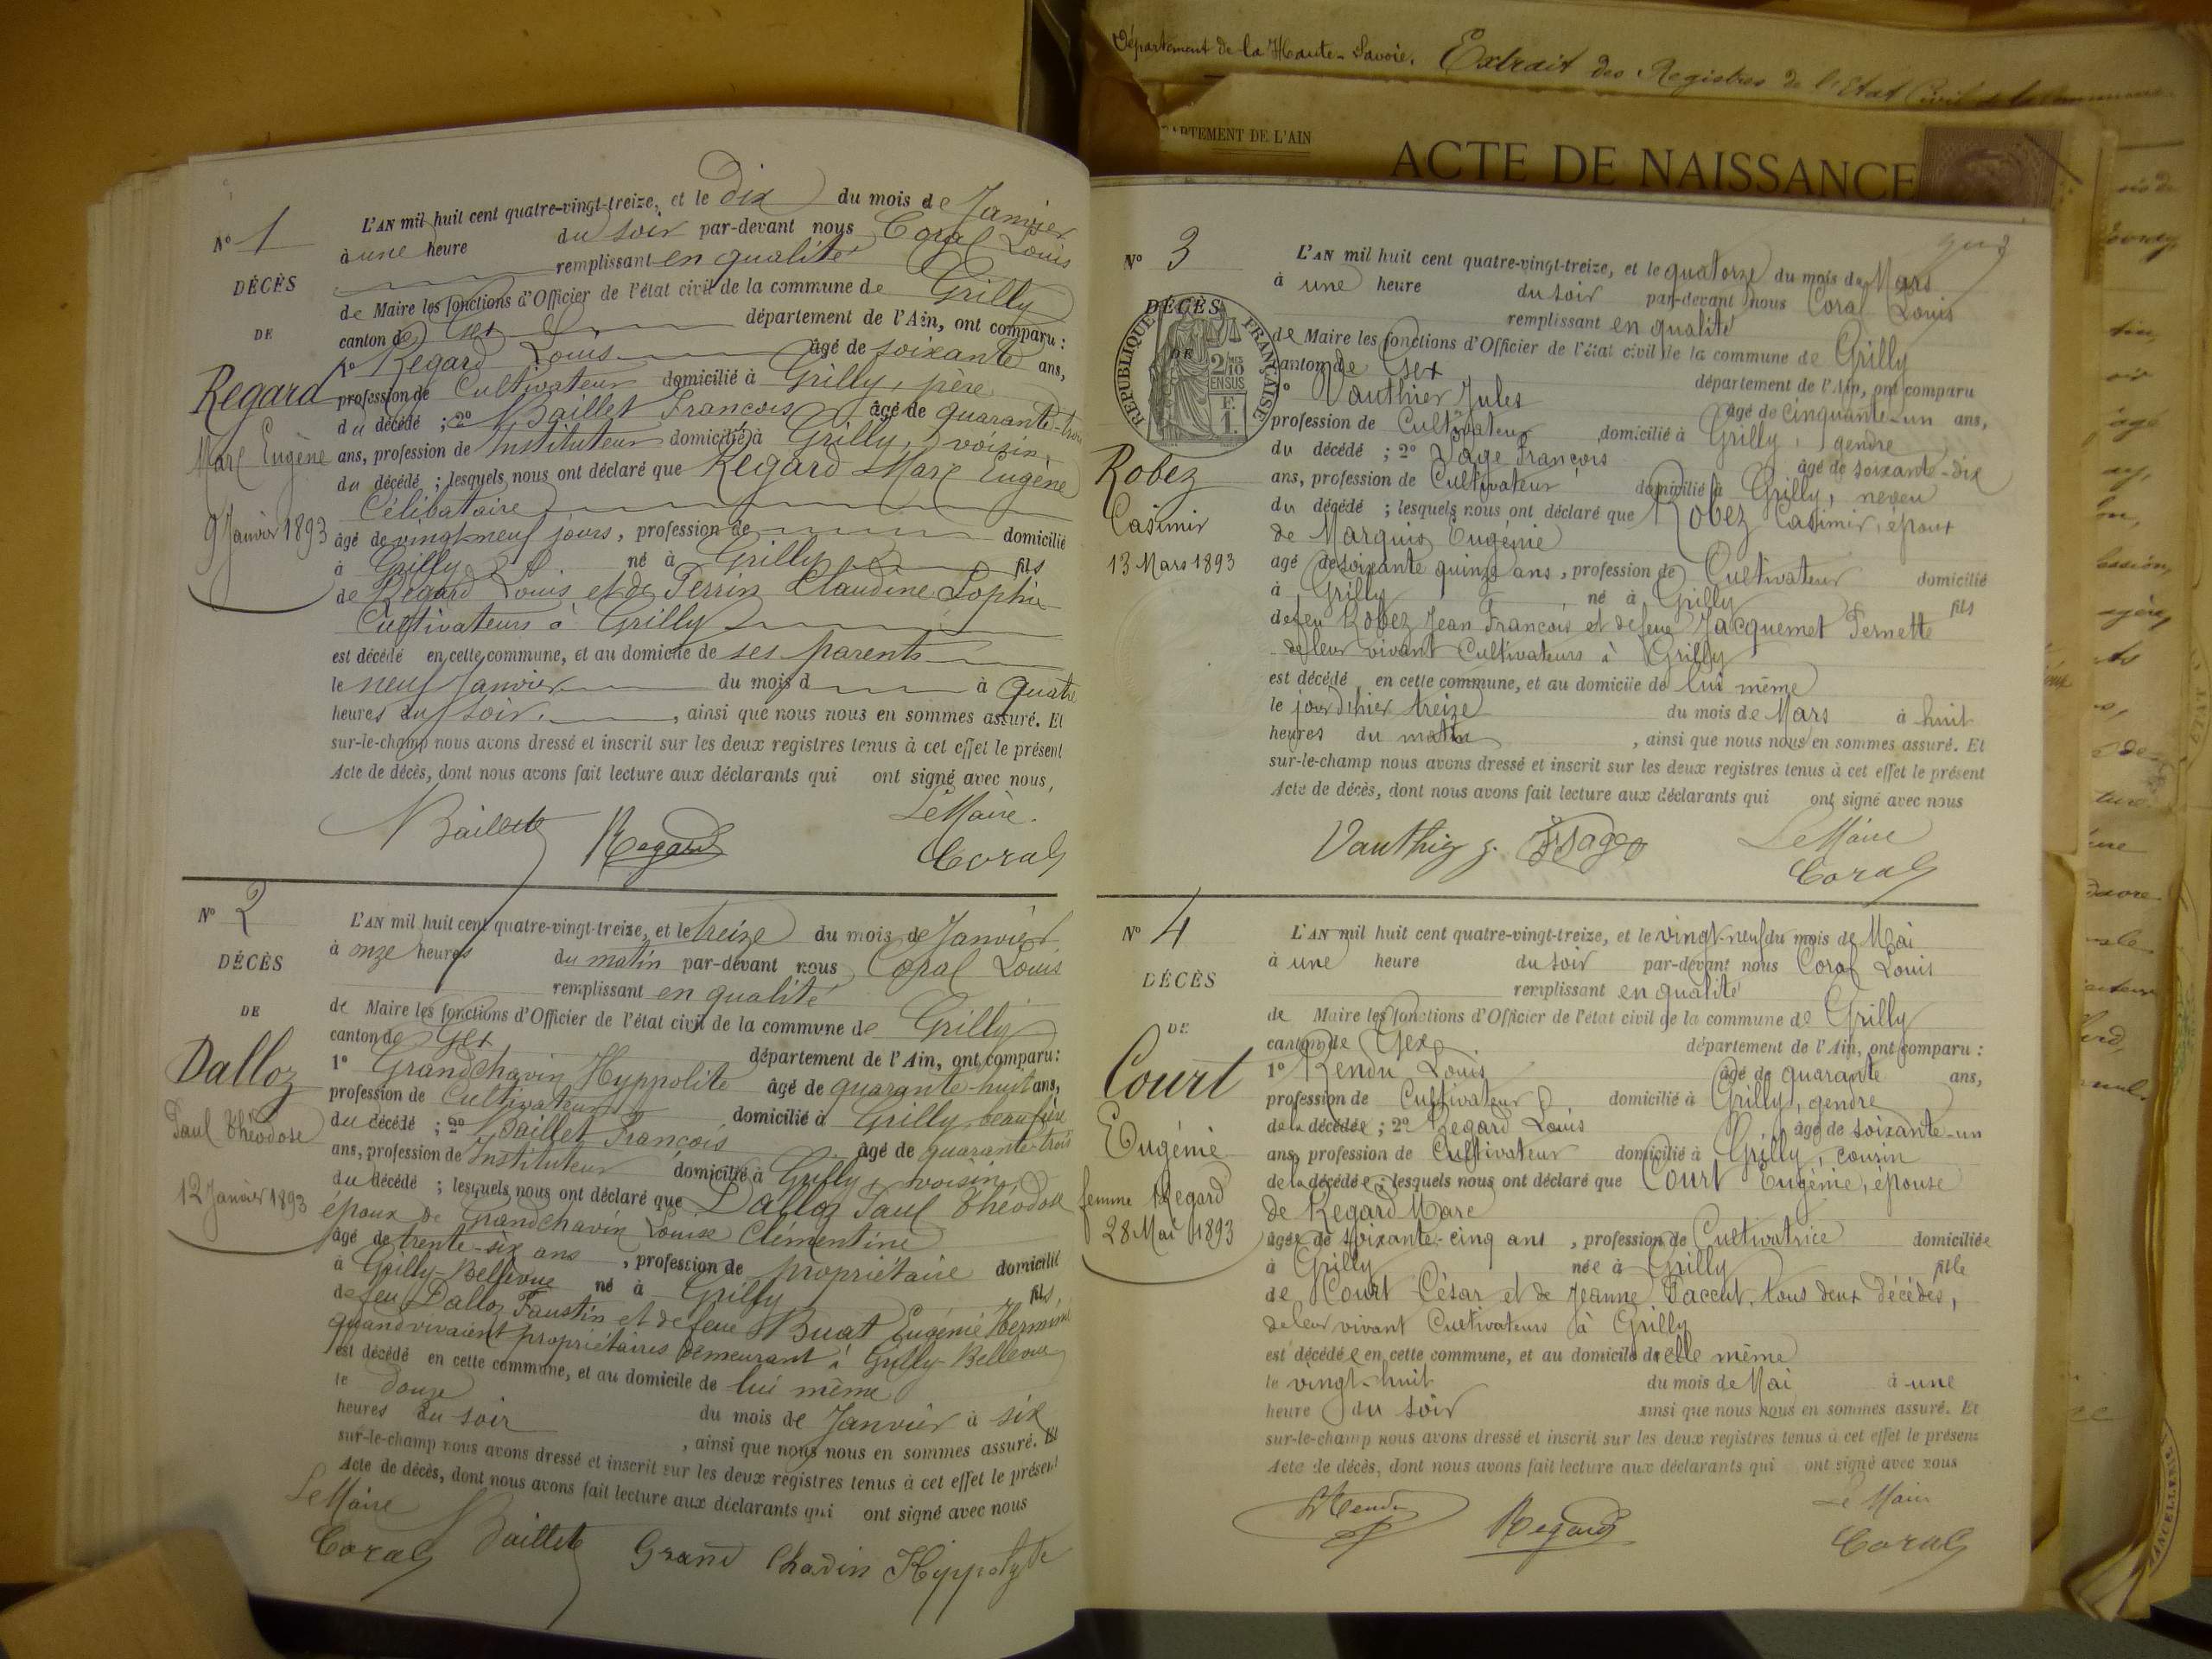 Département de la Haute-Savoie. Extrait des Registres de l'Etat Civil de la
DÉPARTEMENT DE L'AIN
ACTE DE NAISSANCE
N° 1
DÉCÈS
DE
Regard
Marc Eugène
9 Janvier 1893
L'AN mil huit cent quatre-vingt-treize, et le dix du mois de Janvier
à une heure du soir par-devant nous Coral Louis
remplissant en qualité
de Maire les fonctions d'Officier de l'état civil de la commune de Grilly
canton de Gex département de l'Ain, ont comparu :
1° Regard Louis âgé de soixante ans,
profession de Cultivateur domicilié à Grilly, père
du décédé ; 2° Baillet François âgé de quarante-trois
ans, profession de Instituteur domicilié à Grilly, voisin
du décédé ; lesquels nous ont déclaré que Regard Marc Eugène
Célibataire
âgé de vingt-neuf jours, profession de domicilié
à Grilly né à Grilly fils
de Regard Louis et de Perrin Claudine Sophie
Cultivateurs à Grilly
est décédé en cette commune, et au domicile de ses parents
le neuf Janvier du mois d à quatre
heures du soir, ainsi que nous nous en sommes assuré. Et
sur-le-champ nous avons dressé et inscrit sur les deux registres tenus à cet effet le présent
Acte de décès, dont nous avons fait lecture aux déclarants qui ont signé avec nous,
Le Maire.
Baillet Regard Coral
N° 2
DÉCÈS
DE
Dalloz
Paul Théodose
12 Janvier 1893
L'AN mil huit cent quatre-vingt-treize, et le treize du mois de Janvier
à onze heures du matin par-devant nous Coral Louis
remplissant en qualité
de Maire les fonctions d'Officier de l'état civil de la commune de Grilly
canton de Gex département de l'Ain, ont comparu :
1° Grandchavin Hyppolite âgé de quarante-huit ans,
profession de Cultivateur domicilié à Grilly, beau frère
du décédé ; 2° Baillet François âgé de quarante-trois
ans, profession de Instituteur domicilié à Grilly, voisin
du décédé ; lesquels nous ont déclaré que Dalloz Paul Théodose
époux de Grandchavin Louise Clémentine
âgé de trente-six ans, profession de propriétaire domicilié
à Grilly-Bellevue né à Grilly fils,
de feu Dalloz Faustin et de feue Buat Eugénie Hermine
quand vivaient propriétaires demeurant à Grilly-Bellevue
est décédé en cette commune, et au domicile de lui même
le douze du mois de Janvier à six
heures du soir, ainsi que nous nous en sommes assuré. Et
sur-le-champ nous avons dressé et inscrit sur les deux registres tenus à cet effet le présent
Acte de décès, dont nous avons fait lecture aux déclarants qui ont signé avec nous
Le Maire
Coral Baillet Grand Chavin Hyppolyte
N° 3
DÉCÈS
DE
RÉPUBLIQUE FRANÇAISE
2/10 EN SUS
F. 1.
Robez
Casimir
13 Mars 1893
L'AN mil huit cent quatre-vingt-treize, et le quatorze du mois de Mars
à une heure du soir par-devant nous Coral Louis
remplissant en qualité
de Maire les fonctions d'Officier de l'état civil de la commune de Grilly
canton de Gex département de l'Ain, ont comparu
1° Vauthier Jules âgé de cinquante-un ans,
profession de Cultivateur domicilié à Grilly, gendre
du décédé ; 2° Vage François âgé de soixante-dix
ans, profession de Cultivateur domicilié à Grilly, neveu
du décédé ; lesquels nous ont déclaré que Robez Casimir, époux
de Marquis Eugénie
agé de soixante quinze ans, profession de Cultivateur domicilié
à Grilly né à Grilly fils
de feu Robez Jean François et de feue Jacquemet Pernette
de leur vivant Cultivateurs à Grilly
est décédé en cette commune, et au domicile de lui même
le jour d'hier treize du mois de Mars à huit
heures du matin, ainsi que nous nous en sommes assuré. Et
sur-le-champ nous avons dressé et inscrit sur les deux registres tenus à cet effet le présent
Acte de décès, dont nous avons fait lecture aux déclarants qui ont signé avec nous
Le Maire
Vauthier J. Coral
N° 4
DÉCÈS
DE
Court
Eugénie
femme Regard
28 Mai 1893
L'AN mil huit cent quatre-vingt-treize, et le vingt-neuf du mois de Mai
à une heure du soir par-devant nous Coral Louis
remplissant en qualité
de Maire les fonctions d'Officier de l'état civil de la commune de Grilly
canton de Gex département de l'Ain, ont comparu :
1° Rendu Louis âgé de quarante ans,
profession de Cultivateur domicilié à Grilly, gendre
de la décédée ; 2° Regard Louis âgé de soixante-un
ans, profession de Cultivateur domicilié à Grilly, cousin
de la décédée ; lesquels nous ont déclaré que Court Eugénie, épouse
de Regard Marc
âgée de soixante-cinq ans, profession de Cultivatrice domiciliée
à Grilly née à Grilly fille
de Court César et de Jeanne Paccut, tous deux décédés,
de leur vivant Cultivateurs à Grilly
est décédée en cette commune, et au domicile de elle même
le vingt-huit du mois de Mai à une
heure du soir ainsi que nous nous en sommes assuré. Et
sur-le-champ nous avons dressé et inscrit sur les deux registres tenus à cet effet le présent
Acte de décès, dont nous avons fait lecture aux déclarants qui ont signé avec nous
Le Maire
Rendu Regard Coral